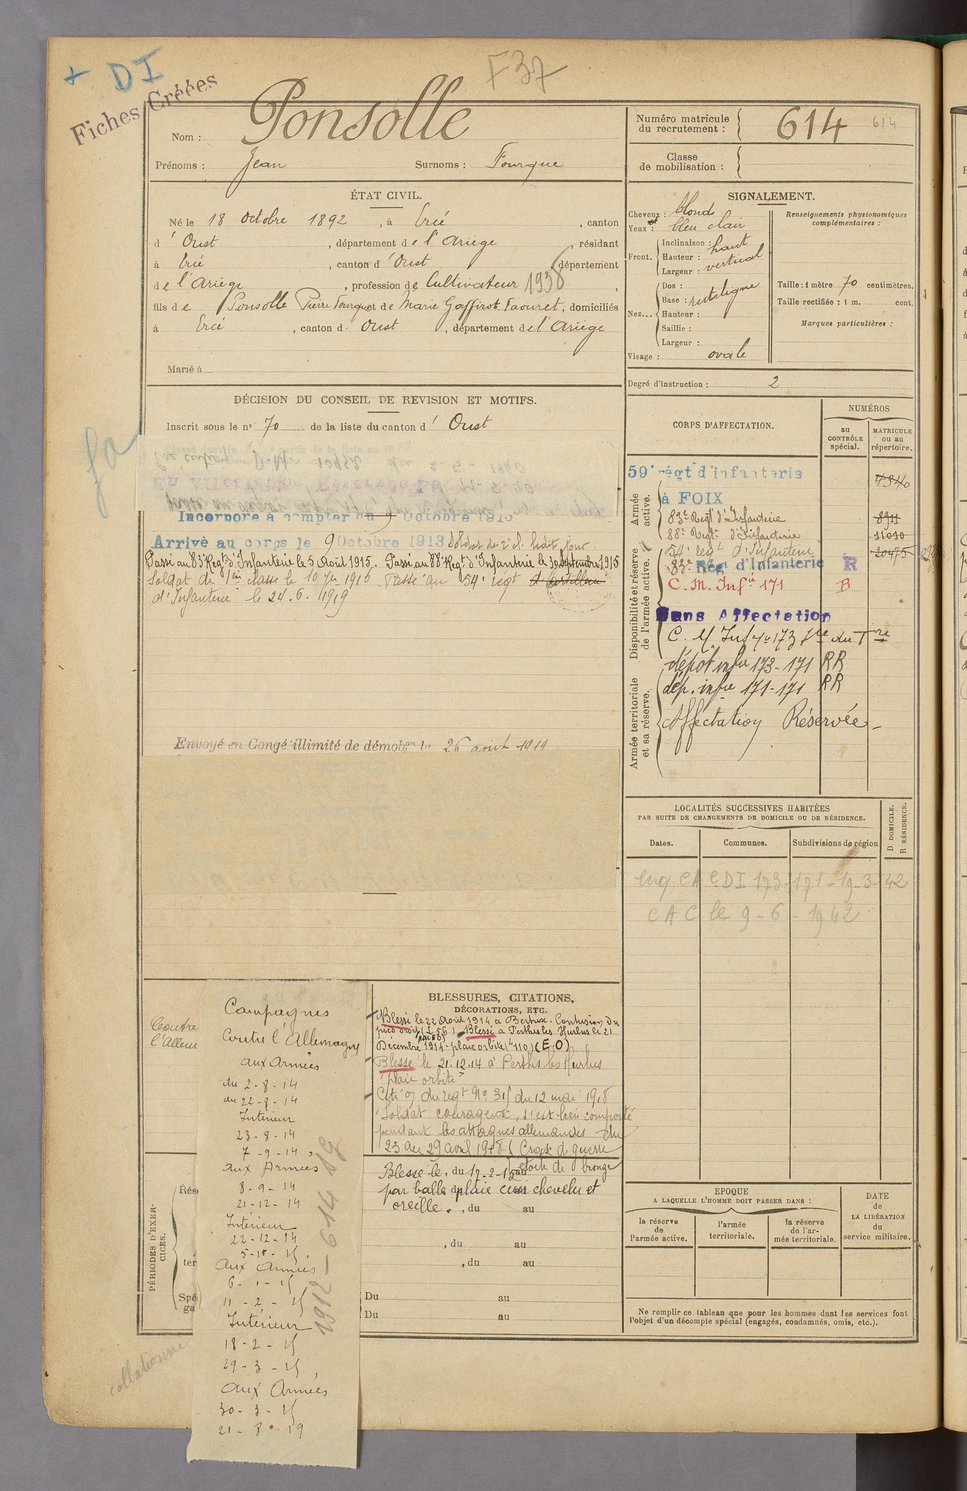 + DI
F37
Fiches Créées
Nom : Ponsolle
Prénoms : Jean Surnoms : Fourque
Numéro matricule du recrutement : 614 614
Classe de mobilisation :
ÉTAT CIVIL.
Né le 18 Octobre 1892, à Ercé, canton
d'Oust, département de l'Ariège, résidant
à Ercé, canton d'Oust département
de l'Ariège, profession de Cultivateur 1938
fils de Ponsolle Pierre Fourque et de Marie Gaffirot Faouret, domiciliés
à Ercé, canton d'Oust, département de l'Ariège
Marié à
SIGNALEMENT.
Cheveux : blond
Yeux : bleu clair
Front. Inclinaison : haut
Hauteur : vertical
Largeur :
Nez... Dos :
Base : rectiligne
Hauteur :
Saillie :
Largeur :
Visage : ovale
Renseignements physionomiques complémentaires :
Taille : 1 mètre 70 centimètres.
Taille rectifiée : 1 m. cent.
Marques particulières :
Degré d'instruction : 2
DÉCISION DU CONSEIL DE REVISION ET MOTIFS.
Inscrit sous le n° 70 de la liste du canton d'Oust
Incorporé à compter du 9 Octobre 1913
Arrivé au corps le 9 Octobre 1913 soldat de 2e cl. ledit jour
Passé au 83e Régt d'Infanterie le 5 Août 1915. Passé au 88e Régt d'Infanterie le 30 Septembre 1915
Soldat de 1ère classe le 10 1916 Passé au 54e régt
d'Infanterie le 24.6.1919
Envoyé en Congé illimité de démobon le 26 août 1919
CORPS D'AFFECTATION.
NUMÉROS
au CONTRÔLE spécial.
MATRICULE ou au répertoire.
Armée active.
59e régt d'infanterie 7340
à FOIX
83e Régt d'Infanterie 8911
88e Régt d'Infanterie 11090
Disponibilité et réserve de l'armée active.
54e régt d'Infanterie 20475
83e Rég d'Infanterie R
C. M. Infie 171 B
Sans Affectation
Armée territoriale et sa réserve.
C. M. Infie 173
dépôt infie 173-171 RR
dép. infie 171-171 RR
Affectation Réservée
LOCALITÉS SUCCESSIVES HABITÉES
PAR SUITE DE CHANGEMENTS DE DOMICILE OU DE RÉSIDENCE.
Dates. Communes. Subdivisions de région
D. DOMICILE. R. RÉSIDENCE.
CDI 173-171-19-3-42
CAC le 9-6-1942
BLESSURES, CITATIONS, DÉCORATIONS, ETC.
Blessé le 22 Août 1914 à Bertrix. Contusion du
pied droit. Blessé à Perthes les Hurlus le 21
Décembre 1914 plaie orbite (E.O)
Blessé le 21.12.14 à Perthes les Hurlus
"plaie orbite"
Cité O/ du régt No 315 du 12 mai 1918
"Soldat courageux, s'est bien comporté
pendant les attaques allemandes du
23 au 29 avril 1918" Croix de guerre
étoile de bronze
Blessé le 17-2-15
par balle plaie cuir chevelu et
oreille.
, du au
, du au
, du au
Du au
Du au
Contre
l'Allem
PÉRIODES D'EXERCICES.
Campagnes
Contre l'Allemagne
aux Armées
du 2-8-14
au 22-8-14
Intérieur
23-8-14
7-9-14
aux Armées
8-9-14
21-12-14
Intérieur
22-12-14
5-1-15
aux Armées
6-1-15
11-2-15
Intérieur
18-2-15
29-3-15
aux Armées
30-3-15
21-8-19
1912-614
EPOQUE
A LAQUELLE L'HOMME DOIT PASSER DANS :
la réserve de l'armée active.
l'armée territoriale.
la réserve de l'armée territoriale.
DATE de LA LIBÉRATION du service militaire.
Ne remplir ce tableau que pour les hommes dont les services font
l'objet d'un décompte spécial (engagés, condamnés, omis, etc.).